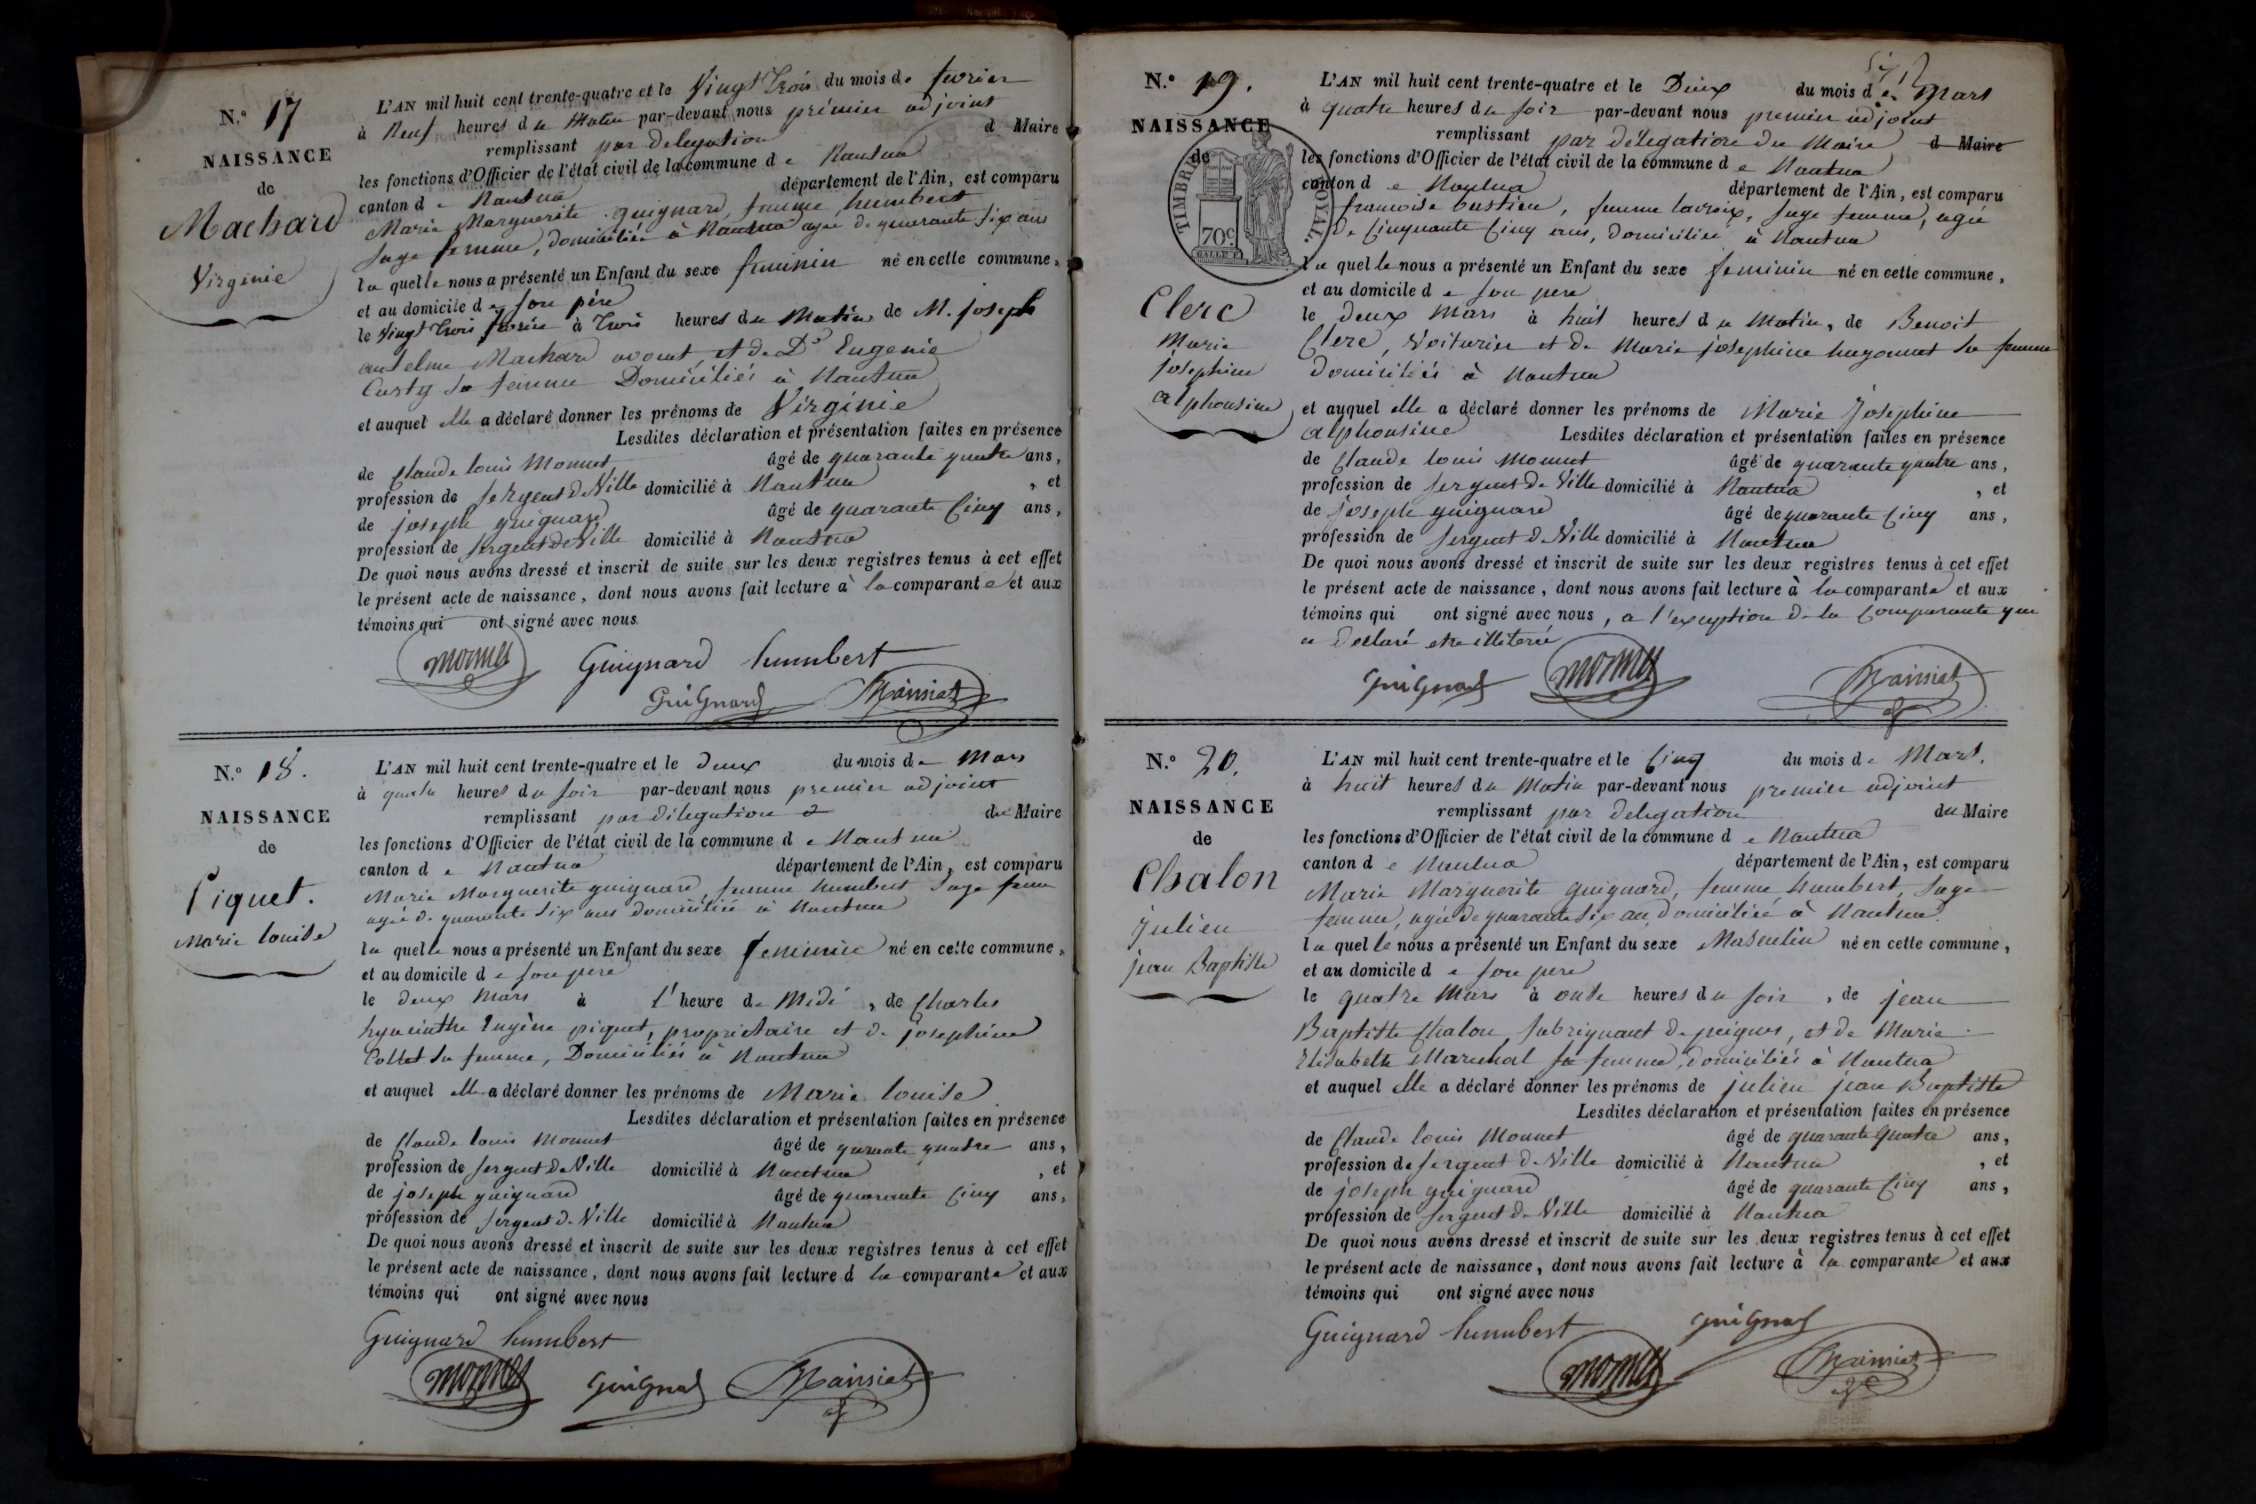 N.° 17
NAISSANCE
de
Machard
Virginie
L'AN mil huit cent trente-quatre et le Vingt trois du mois de fevrier
à Neuf heures du Matin par-devant nous prémier adjoint
remplissant par délégation d Maire
les fonctions d'Officier de l'état civil de la commune de Nantua
canton de Nantua département de l'Ain, est comparu
Marie Marguerite guignard, femme humbert
Sage femme, domiciliée à Nantua agée de quarante six ans
la quelle nous a présenté un Enfant du sexe feminin né en cette commune,
et au domicile de son père
le Vingt trois fevrier à trois heures du Matin de M. joseph
antelme Machard avocat, et de De Eugenie
Casty sa femme Domiciliés à Nantua
et auquel elle a déclaré donner les prénoms de Virginie
Lesdites déclaration et présentation faites en présence
de Claude louis Monnet âgé de quarante quatre ans,
profession de Sergent de Ville domicilié à Nantua , et
de joseph guignard âgé de quarante Cinq ans,
profession de Sergent de Ville domicilié à Nantua
De quoi nous avons dressé et inscrit de suite sur les deux registres tenus à cet effet
le présent acte de naissance, dont nous avons fait lecture à la comparante et aux
témoins qui ont signé avec nous.
Monnet Guignard humbert
Guignard Mainiat
N.° 18.
NAISSANCE
de
Piquet.
Marie louise
L'AN mil huit cent trente-quatre et le deux du mois de Mars
à quatre heures du soir par-devant nous premier adjoint
remplissant par délégation du Maire
les fonctions d'Officier de l'état civil de la commune de Nantua
canton de Nantua département de l'Ain, est comparu
Marie Marguerite guignard, femme humbert Sage femme
agée de quarante six ans domiciliée à Nantua
la quelle nous a présenté un Enfant du sexe feminin né en cette commune,
et au domicile de son pere
le deux Mars à l'heure de Midi , de Charles
hyacinthe Eugène piquet, proprietaire et de josephine
Collet sa femme, Domiciliés à Nantua
et auquel elle a déclaré donner les prénoms de Marie louise
Lesdites déclaration et présentation faites en présence
de Claude louis Monnet âgé de quarante quatre ans,
profession de Sergent de Ville domicilié à Nantua , et
de joseph guignard âgé de quarante Cinq ans,
profession de Sergent de Ville domicilié à Nantua
De quoi nous avons dressé et inscrit de suite sur les deux registres tenus à cet effet
le présent acte de naissance, dont nous avons fait lecture à la comparante et aux
témoins qui ont signé avec nous
Guignard humbert
Monnet Guignard Mainiat
N.° 19.
NAISSANCE
de
TIMBRE ROYAL.
70c
Clerc
Marie
josephine
alphonsine
L'AN mil huit cent trente-quatre et le Deux du mois de Mars
à quatre heures du soir par-devant nous premier adjoint
remplissant par délégation du Maire d Maire
les fonctions d'Officier de l'état civil de la commune de Nantua
canton de Nantua département de l'Ain, est comparu
francoise bastien, femme lacroix, Sage femme, agée
de Cinquante Cinq ans, domiciliée à Nantua
la quelle nous a présenté un Enfant du sexe feminin né en cette commune,
et au domicile de son pere
le deux Mars à huit heures du Matin, de Benoit
Clerc, Voiturier et de Marie josephine hugonnet sa femme
domiciliés à Nantua
et auquel elle a déclaré donner les prénoms de Marie Josephine
alphonsine Lesdites déclaration et présentation faites en présence
de Claude louis Monnet âgé de quarante quatre ans,
profession de Sergent de Ville domicilié à Nantua , et
de joseph guignard âgé de quarante Cinq ans,
profession de Sergent de Ville domicilié à Nantua
De quoi nous avons dressé et inscrit de suite sur les deux registres tenus à cet effet
le présent acte de naissance, dont nous avons fait lecture à la comparante et aux
témoins qui ont signé avec nous, a l'exception de la Comparante qui
a declaré etre illiterée
Guignard Monnet Mainiat
N.° 20.
NAISSANCE
de
Chalon
julien
jean Baptiste
L'AN mil huit cent trente-quatre et le Cinq du mois de Mars.
à huit heures du Matin par-devant nous premier adjoint
remplissant par délégation du Maire
les fonctions d'Officier de l'état civil de la commune de Nantua
canton de Nantua département de l'Ain, est comparu
Marie Marguerite guignard, femme humbert, Sage
femme, agée de quarante six ans, domiciliée à Nantua
la quelle nous a présenté un Enfant du sexe Masculin né en cette commune,
et au domicile de son pere
le quatre Mars à onze heures du soir , de jean
Baptiste Chalon, fabriquant de peignes, et de Marie
Elisabeth Marechal sa femme, domiciliés à Nantua
et auquel elle a déclaré donner les prénoms de julien jean Baptiste
Lesdites déclaration et présentation faites en présence
de Claude louis Monnet âgé de quarante Quatre ans,
profession de Sergent de Ville domicilié à Nantua , et
de joseph guignard âgé de quarante Cinq ans,
profession de Sergent de Ville domicilié à Nantua
De quoi nous avons dressé et inscrit de suite sur les deux registres tenus à cet effet
le présent acte de naissance, dont nous avons fait lecture à la comparante et aux
témoins qui ont signé avec nous
Guignard humbert Guignard
Monnet Mainiat